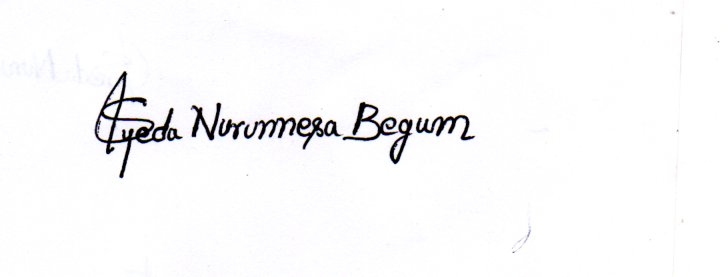 Syeda Nurunnesa Begum